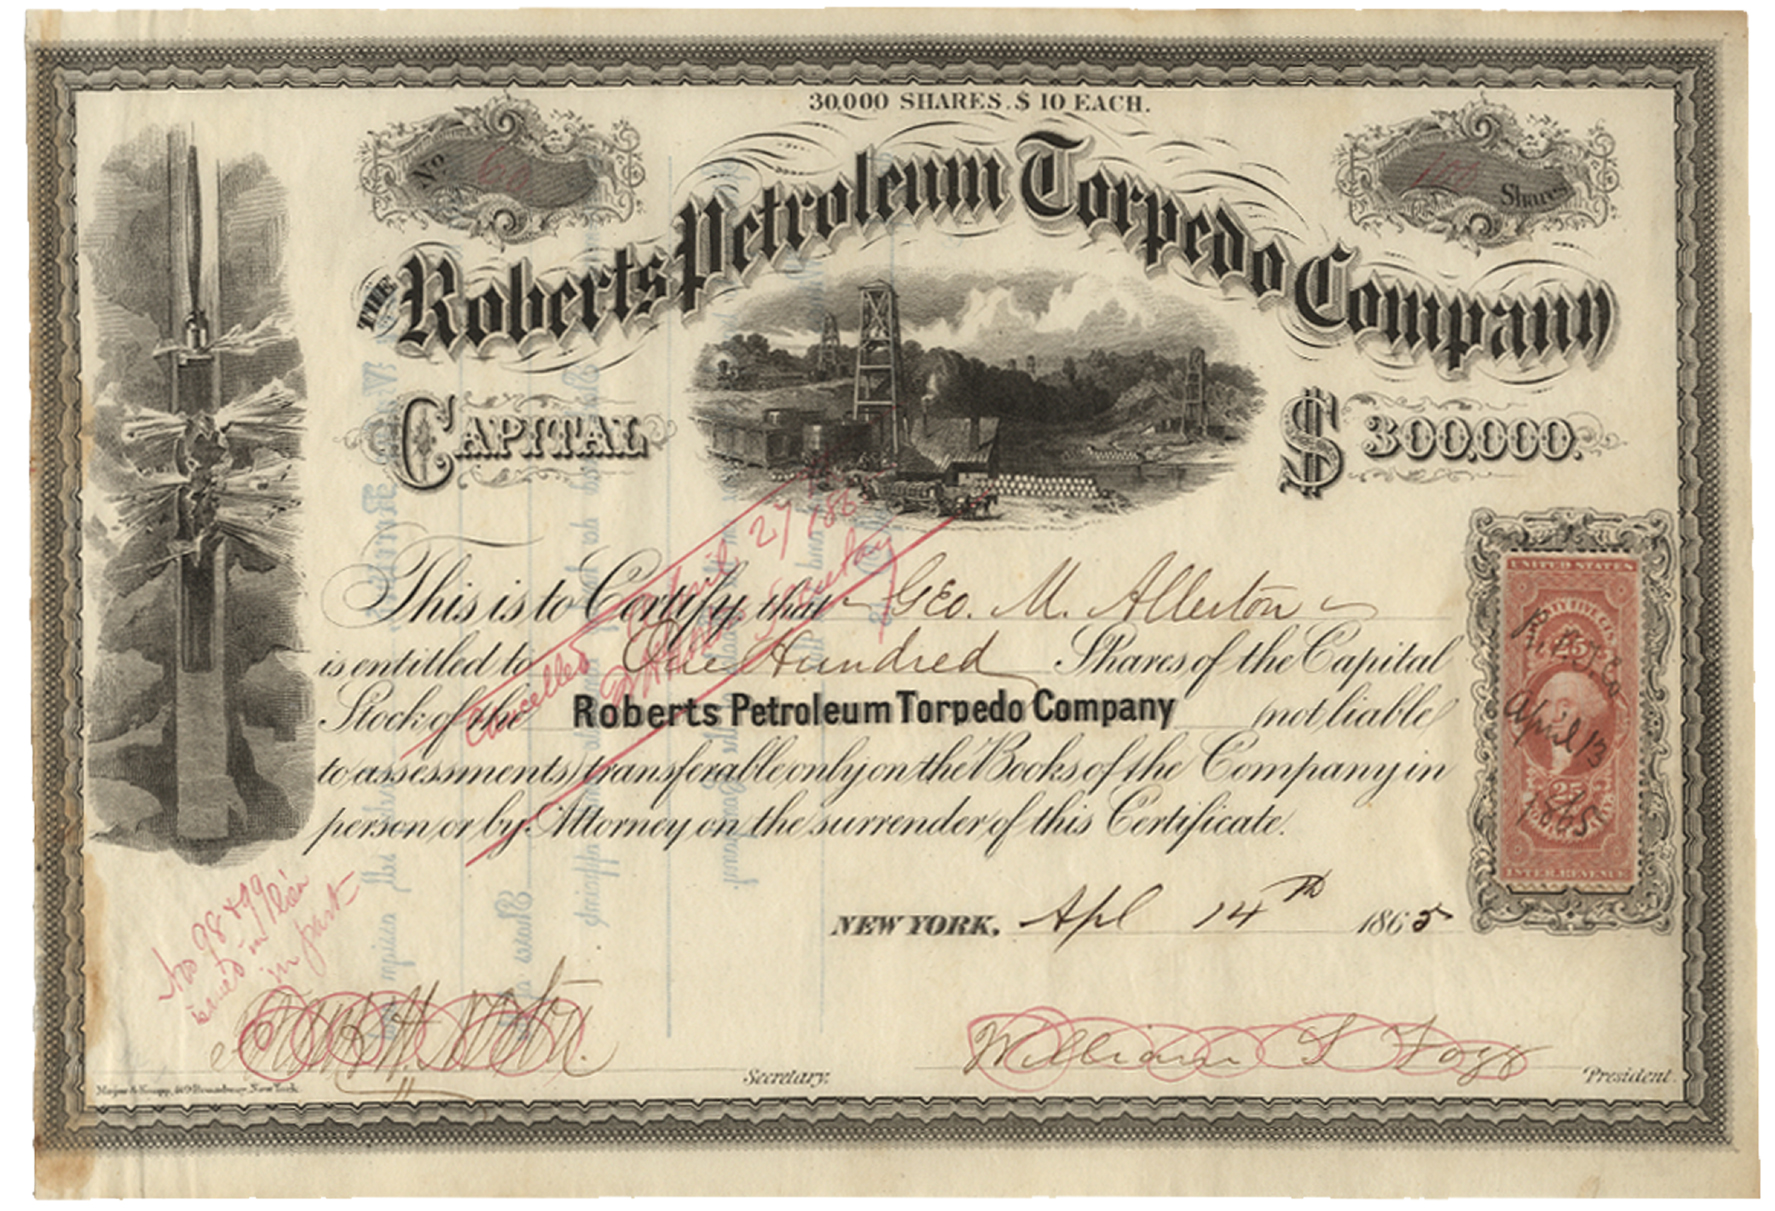 30,000 SHARES. $ 10 EACH.
No 60
100 Shares
THE Roberts Petroleum Torpedo Company
CAPITAL $300,000.
This is to Certify, that Geo. M. Allerton
is entitled to One Hundred Shares of the Capital
Stock of the Roberts Petroleum Torpedo Company (not liable
to assessments) transferable only on the Books of the Company in
person or by Attorney on the surrender of this Certificate.
Cancelled April 27th 186
Secretary
UNITED STATES
25
R.P.T. Co
April 13
1865
25
INTER. REVENUE
NEW YORK, Apl 14th 1865
No 98 & 99
issued in lieu
in part
Secretary.
William L Fogg President.
Major & Knapp, 449 Broadway, New York.